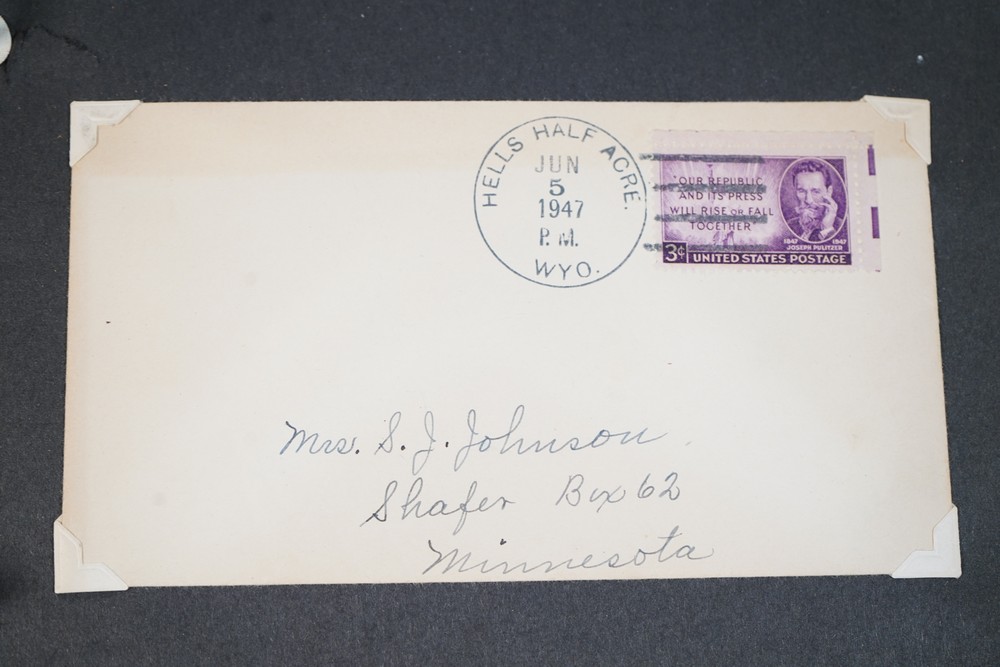 HELLS HALF ACRE.
JUN
5
1947
P.M.
WYO.
"OUR REPUBLIC
AND ITS PRESS
WILL RISE OR FALL
TOGETHER"
1847 1947
JOSEPH PULITZER
3¢ UNITED STATES POSTAGE
Mrs. S. J. Johnson
Shafer Box 62
Minnesota